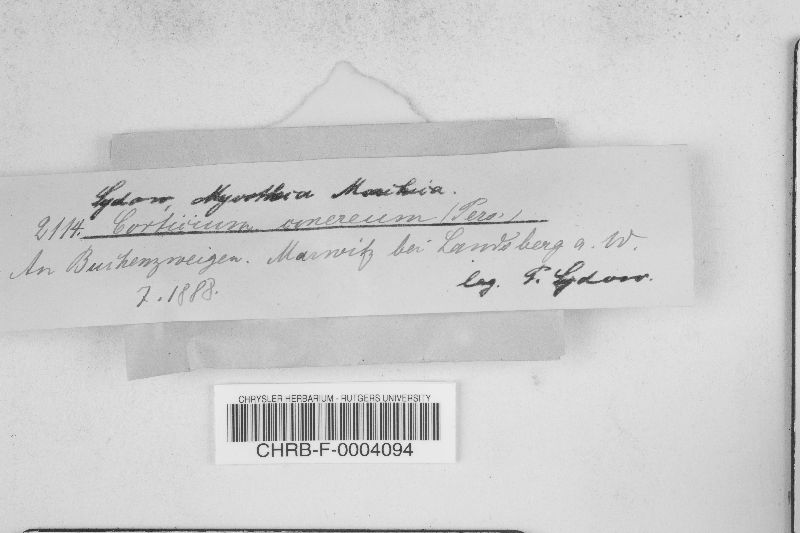 Sydow, Mycotheca Marchica.
2114. Corticium cinereum (Pers.)
An Buchenzweigen. Marwitz bei Landsberg a. W.
7. 1888.
leg. P. Sydow.
CHRYSLER HERBARIUM - RUTGERS UNIVERSITY
CHRB-F-0004094